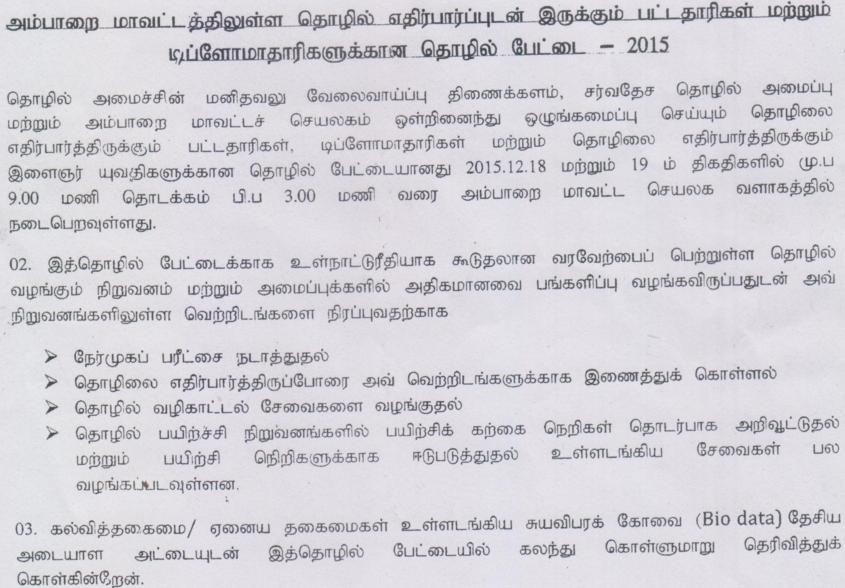 அம்பாறை மாவட்டத்திலுள்ள தொழில் எதிர்பார்ப்புடன் இருக்கும் பட்டதாரிகள் மற்றும்
டிப்ளோமாதாரிகளுக்கான தொழில் பேட்டை – 2015
தொழில் அமைச்சின் மனிதவலு வேலைவாய்ப்பு திணைக்களம், சர்வதேச தொழில் அமைப்பு
மற்றும் அம்பாறை மாவட்டச் செயலகம் ஒன்றினைந்து ஒழுங்கமைப்பு செய்யும் தொழிலை
எதிர்பார்த்திருக்கும் பட்டதாரிகள், டிப்ளோமாதாரிகள் மற்றும் தொழிலை எதிர்பார்த்திருக்கும்
இளைஞர் யுவதிகளுக்கான தொழில் பேட்டையானது 2015.12.18 மற்றும் 19 ம் திகதிகளில் மு.ப
9.00 மணி தொடக்கம் பி.ப 3.00 மணி வரை அம்பாறை மாவட்ட செயலக வளாகத்தில்
நடைபெறவுள்ளது.
02. இத்தொழில் பேட்டைக்காக உள்நாட்டுரீதியாக கூடுதலான வரவேற்பைப் பெற்றுள்ள தொழில்
வழங்கும் நிறுவனம் மற்றும் அமைப்புக்களில் அதிகமானவை பங்களிப்பு வழங்கவிருப்பதுடன் அவ்
நிறுவனங்களிலுள்ள வெற்றிடங்களை நிரப்புவதற்காக
➤ நேர்முகப் பரீட்சை நடாத்துதல்
➤ தொழிலை எதிர்பார்த்திருப்போரை அவ் வெற்றிடங்களுக்காக இணைத்துக் கொள்ளல்
➤ தொழில் வழிகாட்டல் சேவைகளை வழங்குதல்
➤ தொழில் பயிற்ச்சி நிறுவனங்களில் பயிற்சிக் கற்கை நெறிகள் தொடர்பாக அறிவூட்டுதல்
மற்றும் பயிற்சி நெிறிகளுக்காக ஈடுபடுத்துதல் உள்ளடங்கிய சேவைகள் பல
வழங்கப்படவுள்ளன.
03. கல்வித்தகைமை/ ஏனைய தகைமைகள் உள்ளடங்கிய சுயவிபரக் கோவை (Bio data) தேசிய
அடையாள அட்டையுடன் இத்தொழில் பேட்டையில் கலந்து கொள்ளுமாறு தெரிவித்துக்
கொள்கின்றேன்.